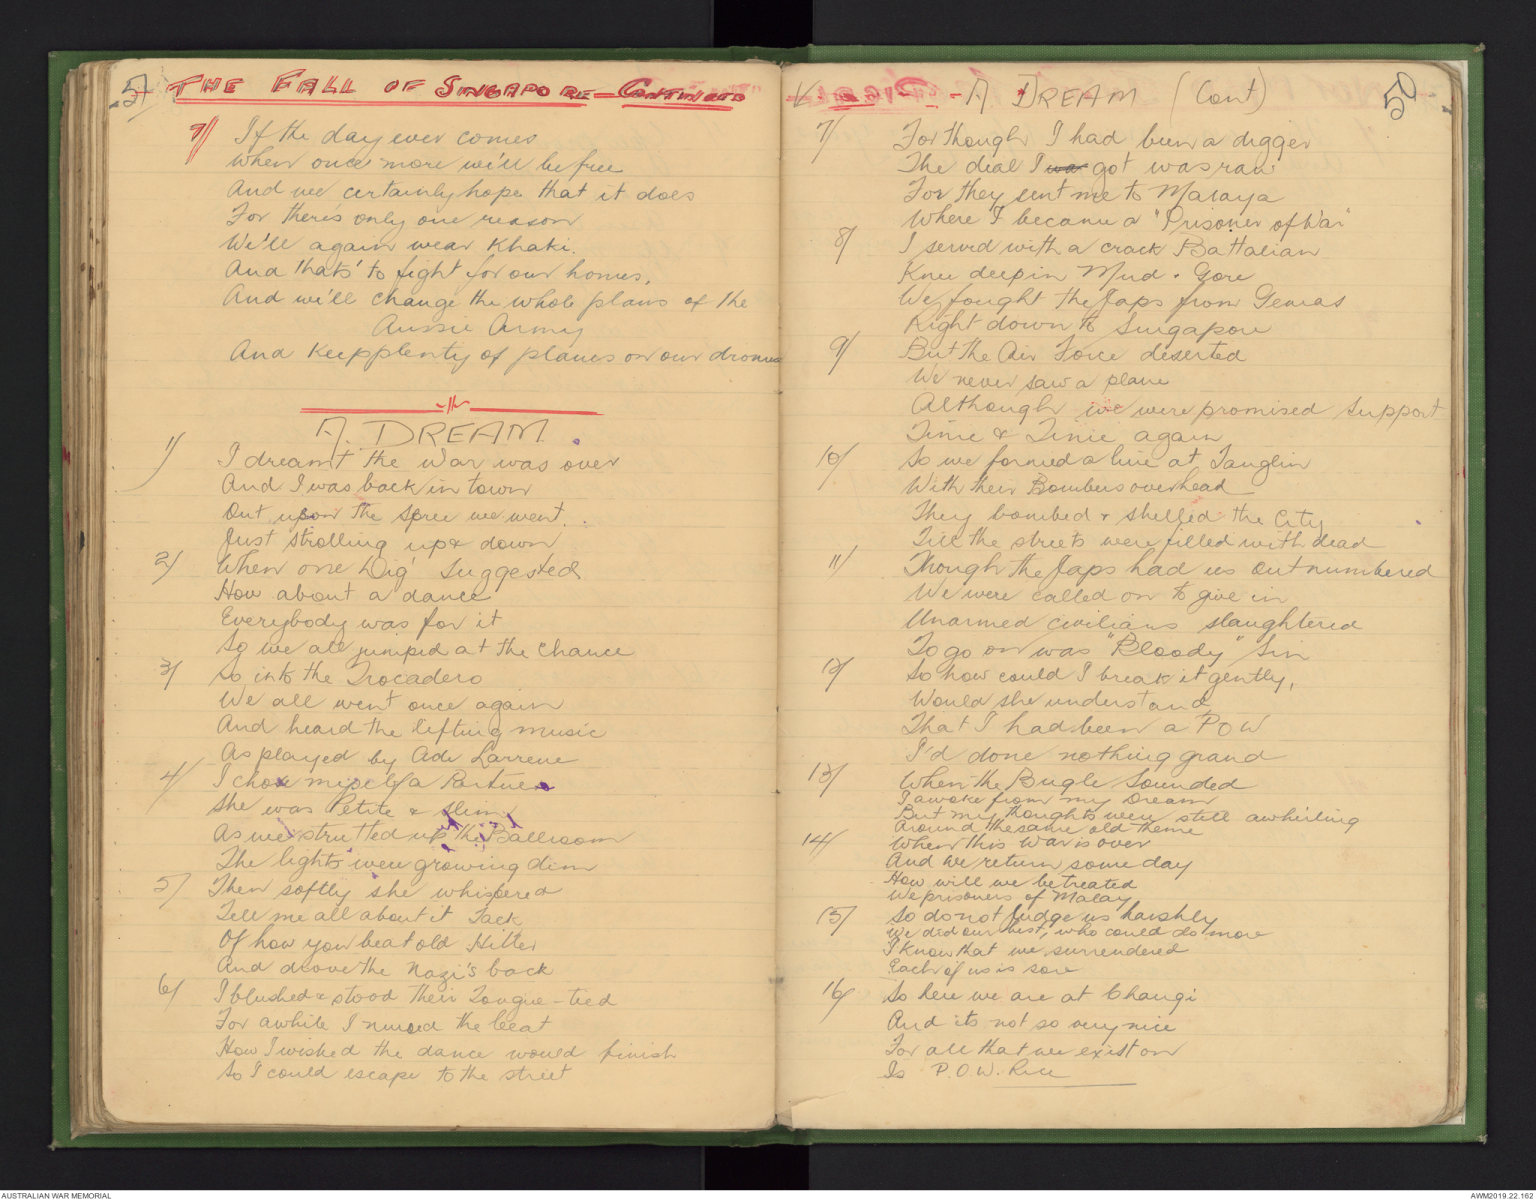 57 THE FALL OF SINGAPORE - CONTINUED
9/ If the day ever comes
When once more we'll be free
And we certainly hope that it does
For there's only one reason
We'll again wear Khaki.
And thats' to fight for our homes.
And we'll change the whole plans of the
Aussie Army
And keep plenty of planes on our dromes
A. DREAM.
1/ I dreamt the War was over
And I was back in town
Out upon the spree we went.
Just strolling up & down
2/ When one Dig' suggested
How about a dance
Everybody was for it
So we all jumped at the chance
3/ So into the Trocadero
We all went once again
And heard the lifting music
As played by Ade Larrene
4/ I chose myself a Partner
She was Petite & slim
As we strutted up the Ballroom
The lights were growing dim
5/ Then softly she whispered
Tell me all about it Jack,
Of how you beat old Hitler
And drove the Nazi's back
6/ I blushed & stood their Tongue-tied
For awhile I nursed the beat
How I wished the dance would finish
So I could escape to the street
A DREAM (Cont) 50
7/ For though I had been a digger
The deal I was got was raw
For they sent me to Malaya
Where I became a "Prisoner of War"
8/ I served with a crack Battalian
Knee deep in Mud & Gore
We fought the Japs from Gemas
Right down to Singapore
9/ But the Air Force deserted
We never saw a plane
Although we were promised support
Time & Time again
10/ So we formed a line at Tanglin
With their Bombers overhead
They bombed & shelled the City
Till the streets were filled with dead
11/ Though the Japs had us outnumbered
We were called on to give in
Unarmed civilians slaughtered
To go on was "Bloody" Sin
12/ So how could I break it gently,
Would she understand
That I had been a P O W
I'd done nothing grand
13/ When the Bugle Sounded
I awoke from my Dream
But my thoughts were still awhirling
Around the same old theme
14/ When this War is over
And we return some day
How will we be treated
We prisoners of Malay
15/ So do not Judge us harshly
We did our best, who could do more
I know that we surrendered
Each of us is sore
16/ So here we are at Changi
And its not so very nice
For all that we exist on
Is P.O.W. Rice
AUSTRALIAN WAR MEMORIAL
AWM2019.22.162